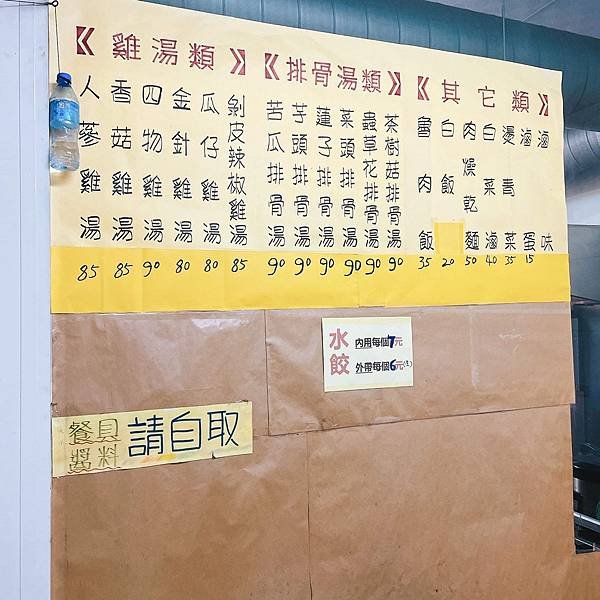 【雞湯類】
人蔘雞湯 85
香菇雞湯 85
四物雞湯 90
金針雞湯 80
瓜仔雞湯 80
剝皮辣椒雞湯 85
【排骨湯類】
苦瓜排骨湯 90
芋頭排骨湯 90
蓮子排骨湯 90
菜頭排骨湯 90
蟲草花排骨湯 90
茶樹菇排骨湯 90
【其它類】
魯肉飯 35
白飯 20
肉燥乾麵 50
白菜滷 40
燙青菜 35
滷蛋 15
滷味
水餃
內用每個7元
外帶每個6元(生)
餐具醬料 請自取